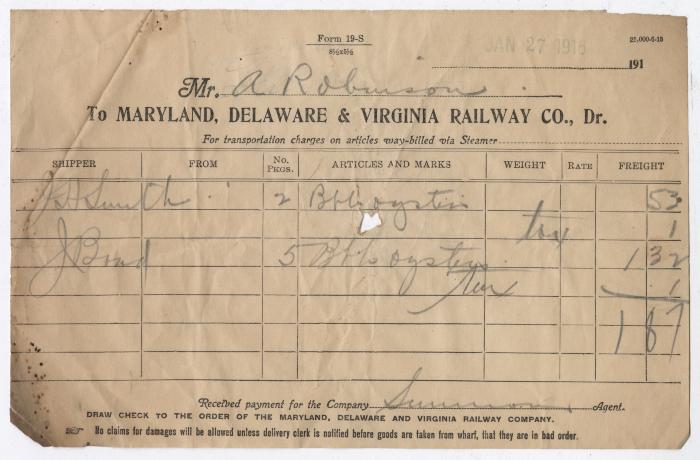 Form 19-S
8½x5½
25,000-6-15
JAN 27 1916
191
Mr. A Robinson
To MARYLAND, DELAWARE & VIRGINIA RAILWAY CO., Dr.
For transportation charges on articles way-billed via Steamer
SHIPPER FROM No. PKGS. ARTICLES AND MARKS WEIGHT RATE FREIGHT
Smith 2 Bbls oysters 53
tax 1
J Bond 5 Bbls oysters 1 32
Tax 1
1 87
Received payment for the Company Agent.
DRAW CHECK TO THE ORDER OF THE MARYLAND, DELAWARE AND VIRGINIA RAILWAY COMPANY.
No claims for damages will be allowed unless delivery clerk is notified before goods are taken from wharf, that they are in bad order.